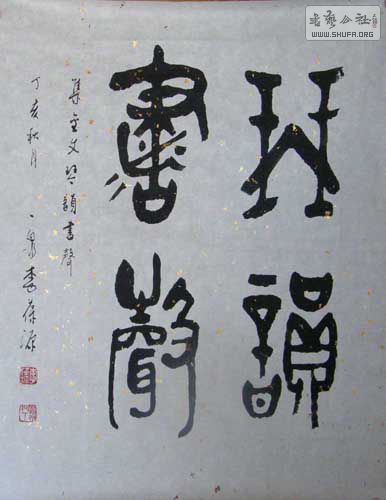 书艺公社
WWW.SHUFA.ORG
琴韻
書聲
集金文琴韻書聲
丁亥秋月 李葆源